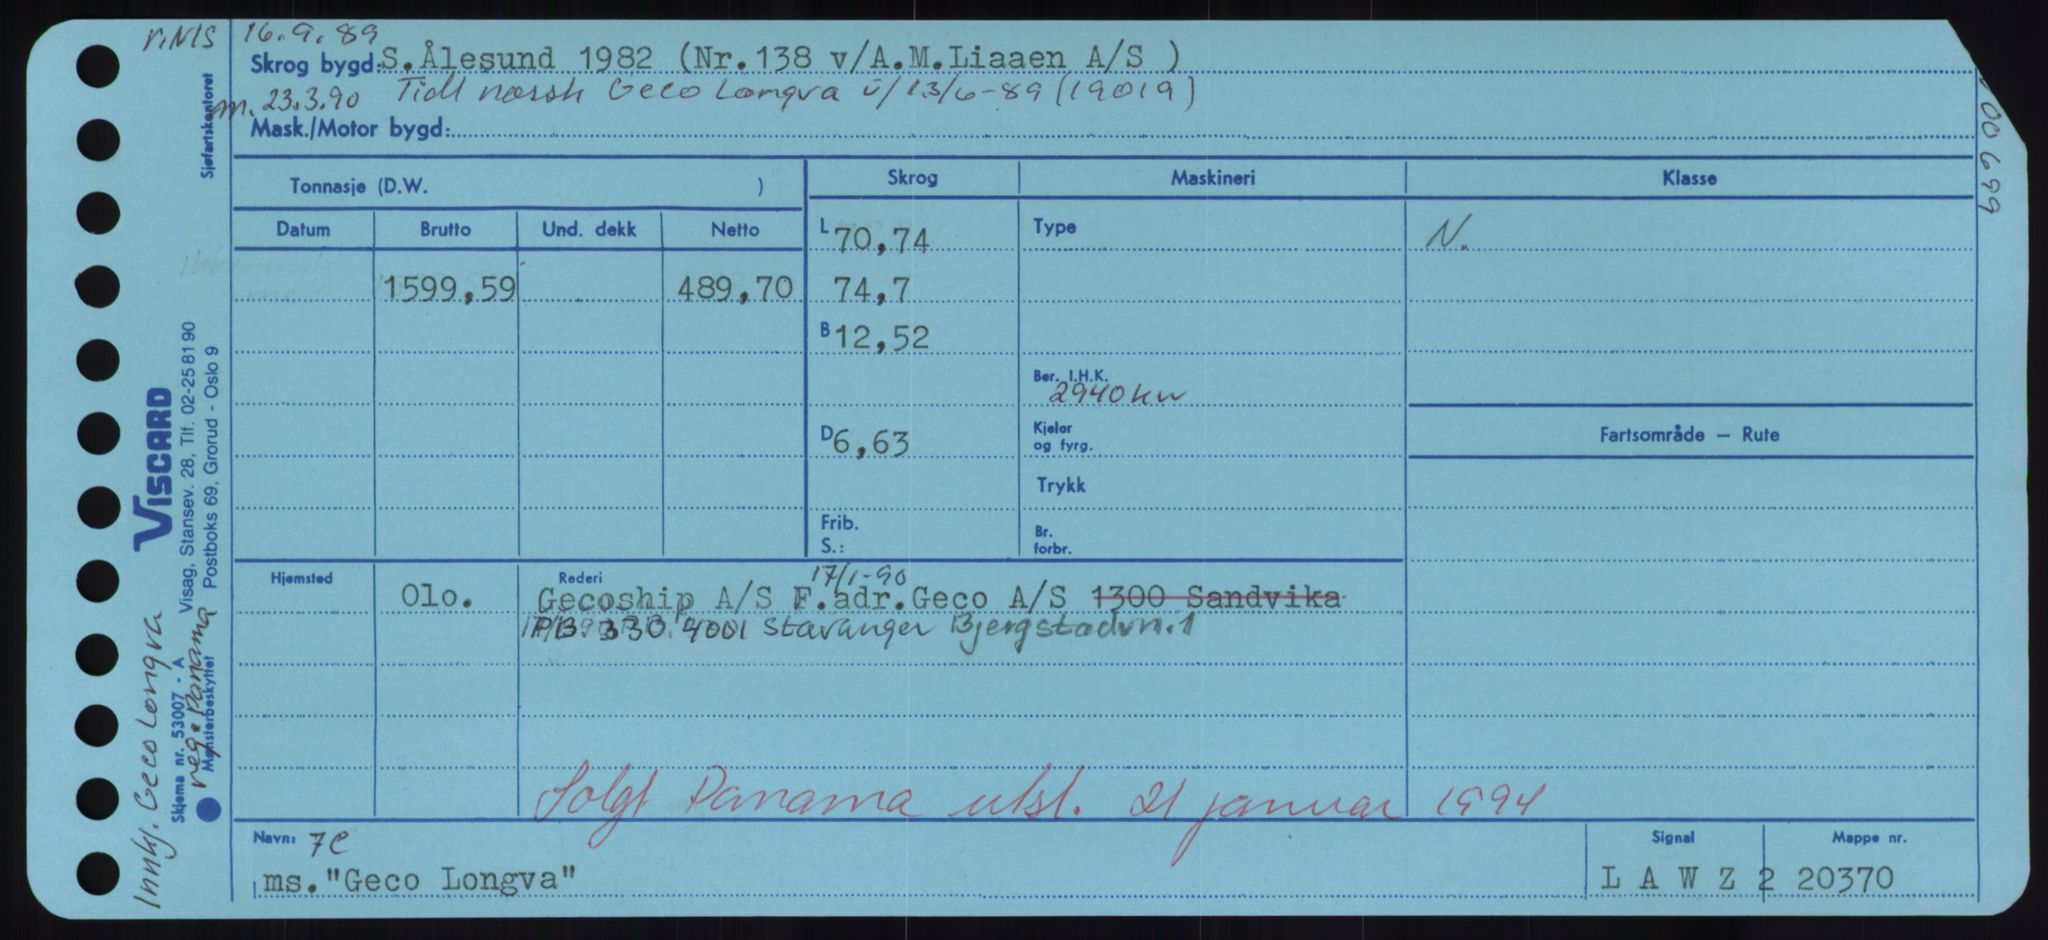 r.NIS 16.9.89
Skrog bygd: S. Ålesund 1982 (Nr.138 v/A.M.Liaaen A/S )
m. 23.3.90 Tidl norsk Geco Longva i/13/6-89 (19019)
Mask./Motor bygd:
Tonnasje (D.W. )
Skrog Maskineri Klasse
Datum Brutto Und. dekk Netto
L 70,74 Type N.
1599,59 489,70 74,7
B 12,52
Ber. I.H.K.
2940 kw
D 6,63 Kjeler og fyrg. Fartsområde – Rute
Trykk
Frib.
S.: Br. forbr.
17/1-90
Hjemsted Olo. Rederi Gecoship A/S F.adr.Geco A/S 1300 Sandvika
PB 330 4001 Stavanger Bjergstedvn. 1
Solgt Panama utst. 21 januar 1994
Navn: 7c Signal Mappe nr.
ms."Geco Longva" L A W Z 2 20370
Sjøfartskontoret
VISCARD
Visag, Stansev. 28, Tlf. 02-25 81 90
Postboks 69, Grorud - Oslo 9
Skjema nr. 53007 - A
Mønsterbeskyttet
Innkj. Geco Longva
reg. Panama
00699